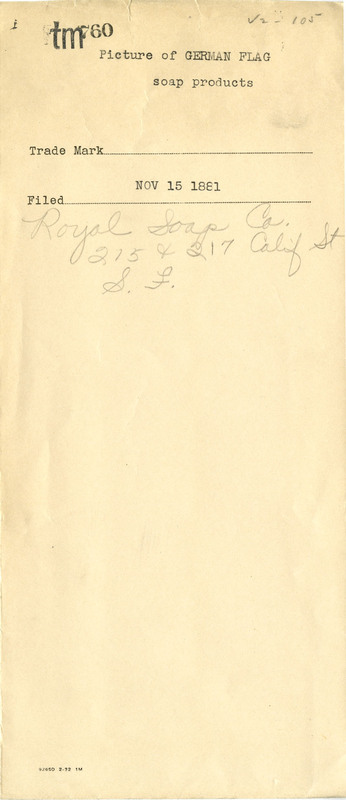 V2-105
tm760
Picture of GERMAN FLAG
soap products
Trade Mark
NOV 15 1881
Filed
Royal Soap Co.
215 & 217 Calif St
S. F.